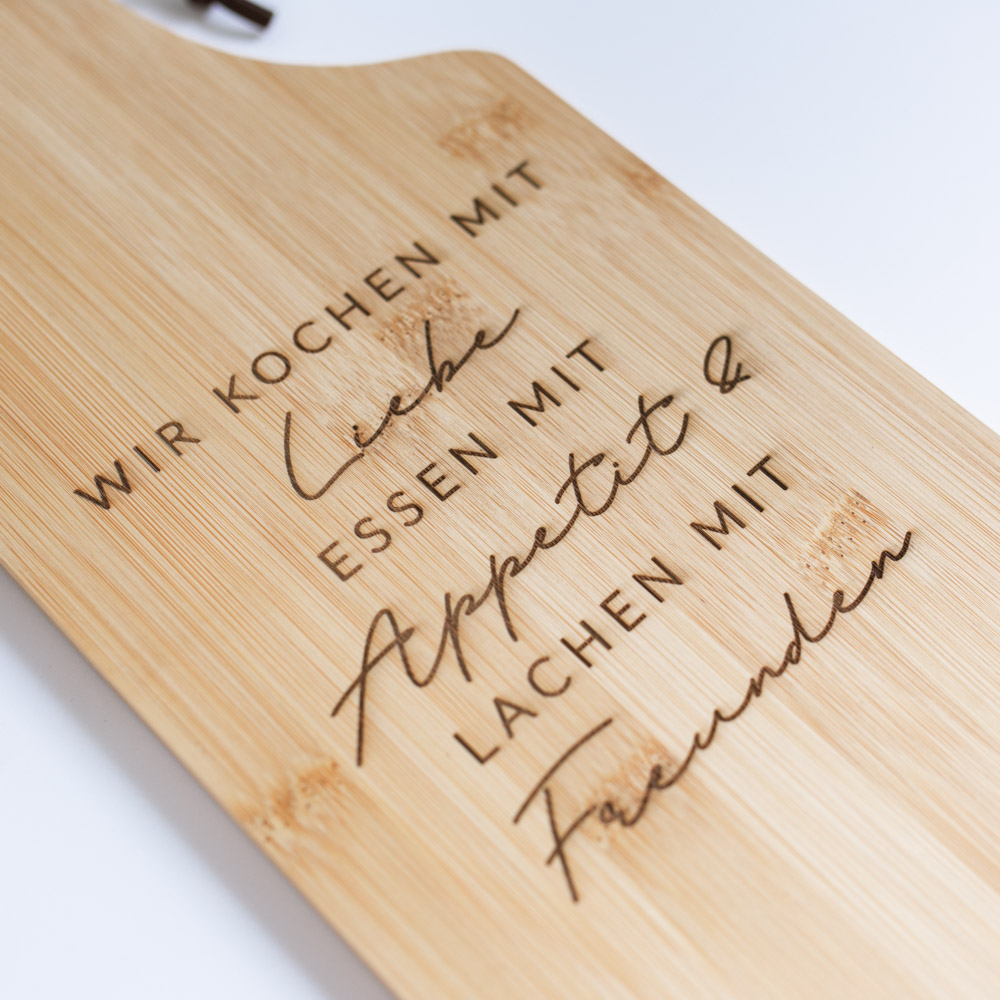 WIR KOCHEN MIT
Liebe
ESSEN MIT
Appetit &
LACHEN MIT
Freunden